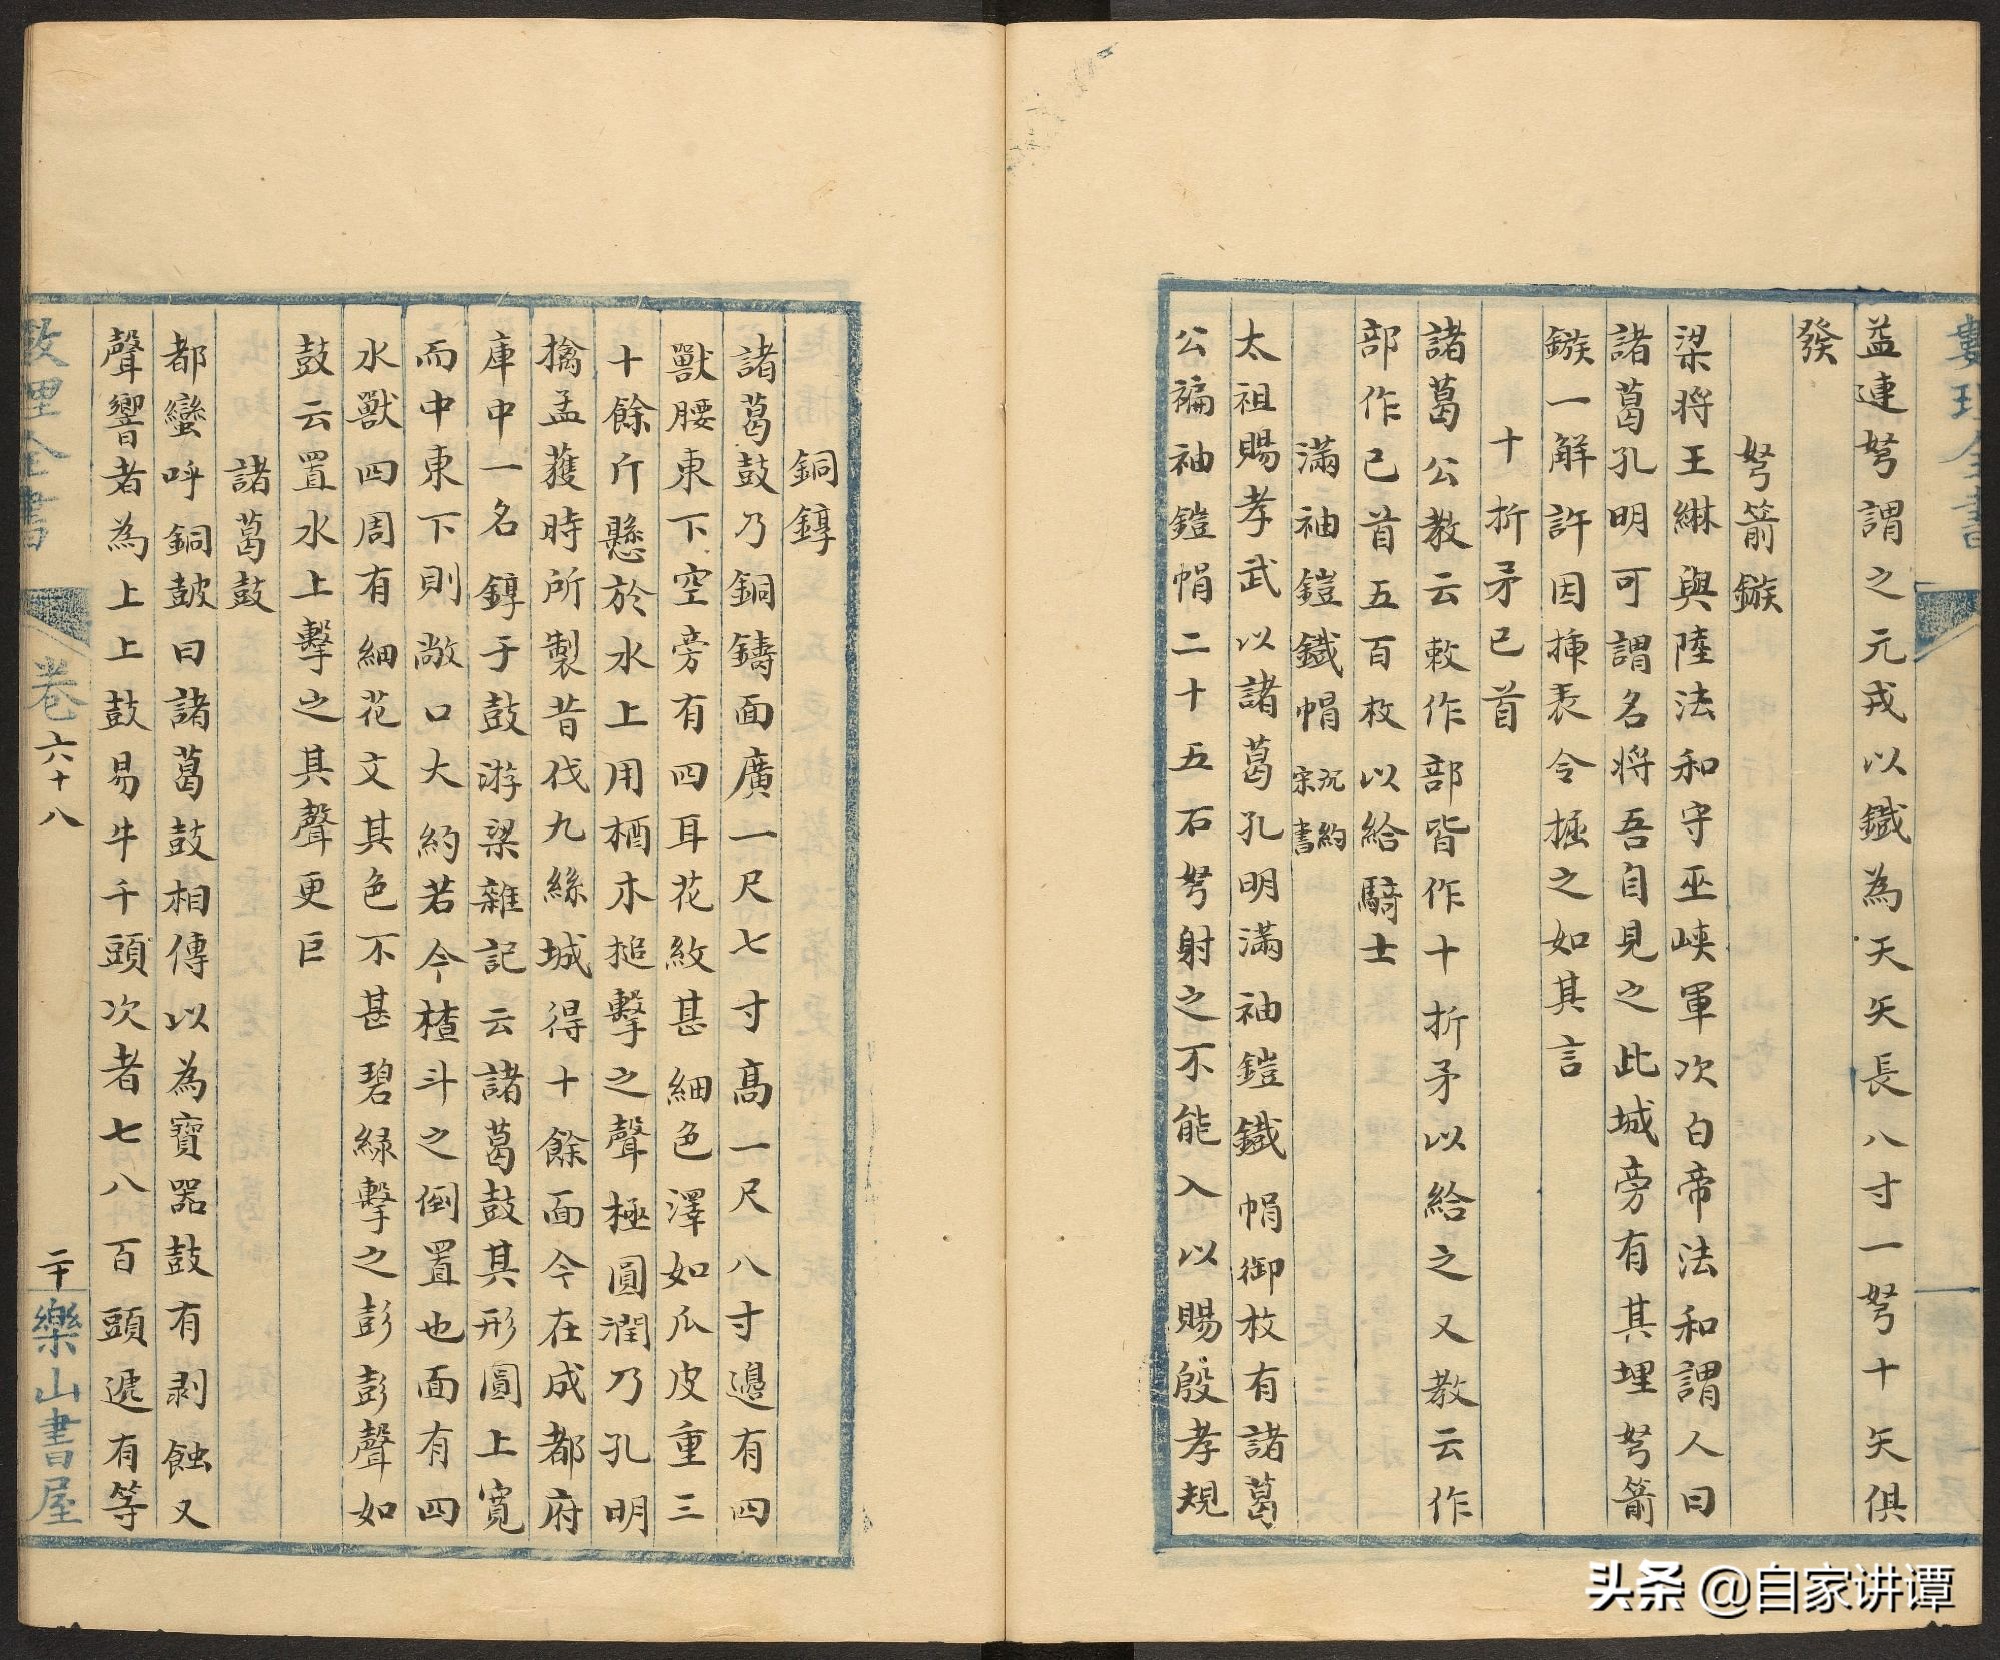 益連弩謂之元戎以鐵為天矢長八寸一弩十矢俱
發
弩箭鏃
梁將王綝與陸法和守巫峽軍次白帝法和謂人曰
諸葛孔明可謂名將吾自見之此城旁有其埋弩箭
鏃一解許因插表令掘之如其言
十折矛已首
諸葛公教云敕作部皆作十折矛以給之又教云作
部作已首五百枚以給騎士
滿袖鎧鐵帽沉約宋書
太祖賜孝武以諸葛孔明滿袖鎧鐵帽御枚有諸葛
公褊袖鎧帽二十五石弩射之不能入以賜殷孝規
銅錞
諸葛鼓乃銅鑄面廣一尺七寸高一尺八寸邊有四
獸腰束下空旁有四耳花紋甚細色澤如瓜皮重三
十餘斤懸於水上用楢木搥擊之聲極圓潤乃孔明
擒孟獲時所製昔伐九絲城得十餘面今在成都府
庫中一名錞于鼓游梁雜記云諸葛鼓其形圓上寬
而中東下則敞口大約若今楂斗之倒置也面有四
水獸四周有細花文其色不甚碧綠擊之彭彭聲如
鼓云置水上擊之其聲更巨
諸葛鼓
都蠻呼銅鼓曰諸葛鼓相傳以為寶器鼓有剥蝕又
聲響者為上上鼓易牛千頭次者七八百頭遞有等
數理全書
卷六十八
二十
樂山書屋
头条 @自家讲谭